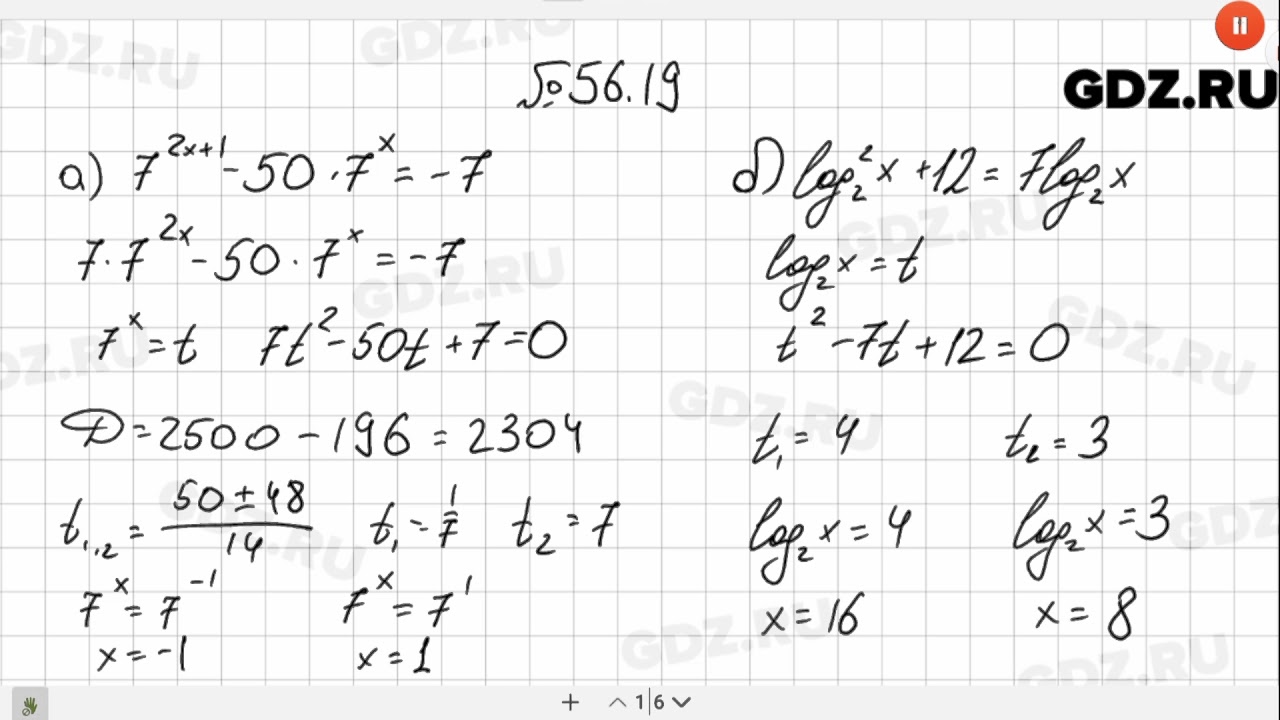 №56.19
GDZ.RU
а) 7^{2x+1} - 50 · 7^x = -7
7 · 7^{2x} - 50 · 7^x = -7
7^x = t   7t^2 - 50t + 7 = 0
D = 2500 - 196 = 2304
t_{1,2} = \frac{50 ± 48}{14}   t_1 = \frac{1}{7}   t_2 = 7
7^x = 7^{-1}   7^x = 7^1
x = -1   x = 1
б) log_2^2 x + 12 = 7log_2 x
log_2 x = t
t^2 - 7t + 12 = 0
t_1 = 4   t_2 = 3
log_2 x = 4   log_2 x = 3
x = 16   x = 8
1|6